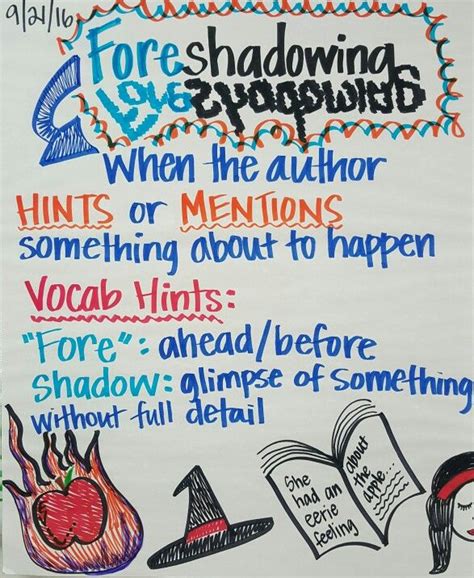 9/21/16
Foreshadowing
Foreshadowing
When the author
HINTS or MENTIONS
something about to happen
Vocab Hints:
"Fore": ahead/before
Shadow: glimpse of something
without full detail
She
had an
eerie
feeling
about
the
apple...